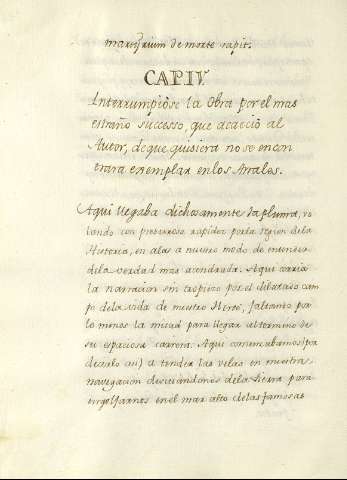 martyrium de morte rapit.
CAP IV
Interrumpiòse la Obra por el mas
estraño successo, que acaeciò al
Autor, de que quisiera no se encon
trara exemplar en los Anales.
Aqui llegaba dichosamente la pluma, vo
lando con presurosa rapidez por la region de la
Historia, en alas a nuestro modo de entender
de la verdad mas acendrada. Aqui corria
la narracion sin tropiezo por el dilatado cam
po de la vida de nuestro Heroe, faltando por
lo menos la mitad para llegar al termino de
su espaciosa carrera. Aqui comenzabamos (por
decirlo asi) a tender las velas en nuestra
navegacion desviandonos de la tierra para
engolfarnos en el mar alto de las famosas